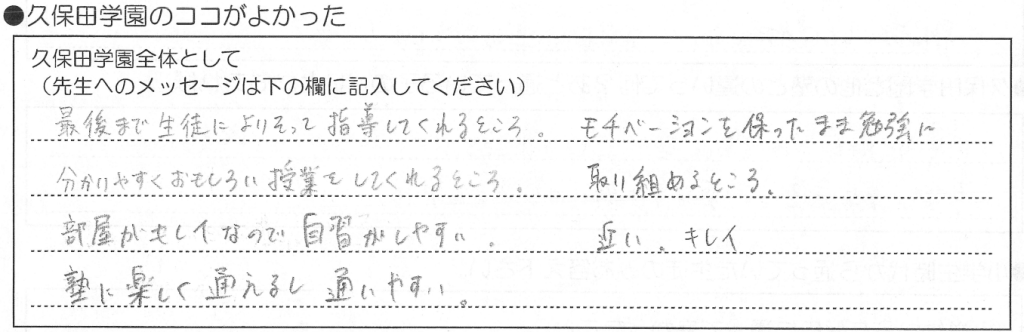 ●久保田学園のココがよかった
久保田学園全体として
(先生へのメッセージは下の欄に記入してください)
最後まで生徒によりそって指導してくれるところ。 モチベーションを保ったまま勉強に
分かりやすくおもしろい授業をしてくれるところ。 取り組めるところ。
部屋がキレイなので自習がしやすい。 近い。キレイ
塾に楽しく通えるし通いやすい。